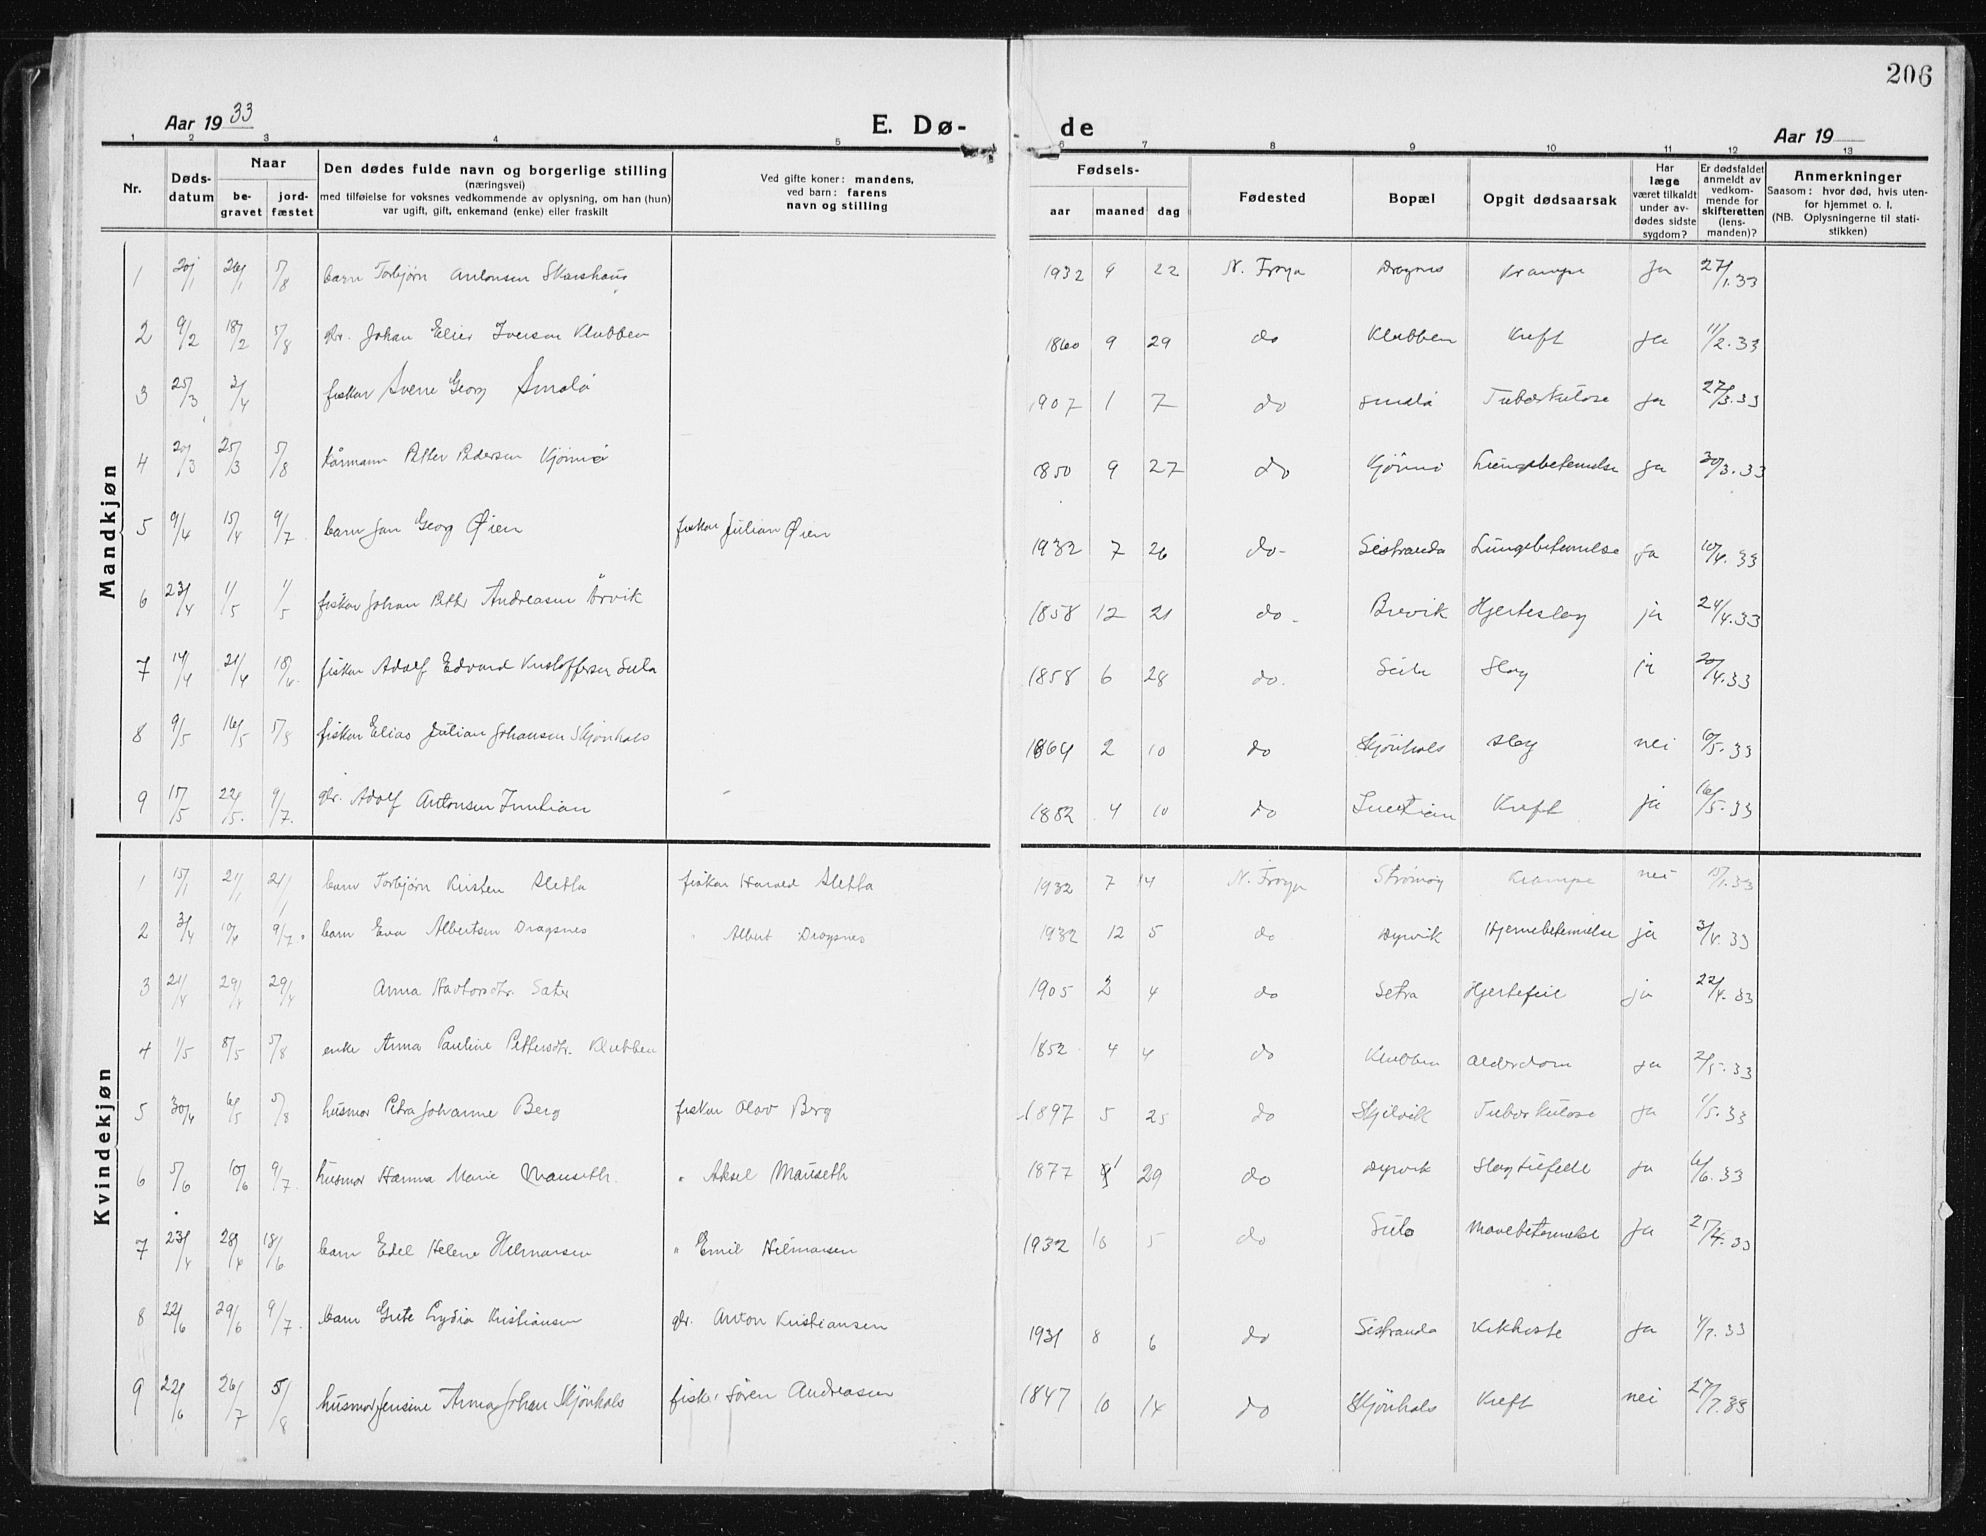 206
Aar 1933
E. Dø-
de
Aar 19
1 2 3 4 5 6 7 8 9 10 11 12 13
Nr.
Døds-
datum
Naar
be-
gravet
jord-
fæstet
Den dødes fulde navn og borgerlige stilling
(næringsvei)
med tilføielse for voksnes vedkommende av oplysning, om han (hun)
var ugift, gift, enkemand (enke) eller fraskilt
Ved gifte koner: mandens,
ved barn: farens
navn og stilling
Fødsels-
aar
maaned
dag
Fødested
Bopæl
Opgit dødsaarsak
Har
læge
været tilkaldt
under av-
dødes sidste
sygdom?
Er dødsfaldet
anmeldt av
vedkom-
mende for
skifteretten
(lens-
manden)?
Anmerkninger
Saasom: hvor død, hvis uten-
for hjemmet o. l.
(NB. Oplysningerne til stati-
stikken)
Mandkjøn
1 20/1 26/1 5/8 barn Torbjørn Antonsen 1932 9 22 N. Frøya Dragsnes Krampe Ja 27/1.33
2 9/2 18/2 5/8 gbr. Johan Elier Iversen Klubben 1860 9 29 do Klubben Kreft ja 11/2.33
3 25/3 2/4 fisker Sverre Georg Småla 1907 1 7 do Småla Tuberkulose ja 27/3.33
4 20/3 25/3 5/8 kårmann Petter Pedersen Kjønnø 1850 9 27 do Kjønnø Lungebetennelse ja 30/3.33
5 9/4 15/4 9/7 barn Jan Georg Øien fisker Julian Øien 1932 7 26 do Sistranda Lungebetennelse ja 10/4.33
6 23/4 1/5 1/5 fisker Johan Petter Andreasen Årvik 1858 12 21 do Brevik Hjerteslag ja 24/4.33
7 14/4 21/4 18/6 fisker Adolf Edvard Kristoffersen Sula 1858 6 28 do. Sula Slag ja 20/4.33
8 9/5 16/5 5/8 fisker Elias Julian Johansen Skjønhals 1864 2 10 do Skjønhals slag nei 10/5.33
9 15/5 22/5 9/7 gbr. Adolf Antonsen 1852 4 10 do Kreft ja 16/5.33
Kvindekjøn
1 15/1 21/1 21/1 barn Torbjørn Kristen Sletta fisker Harald Sletta 1932 7 14 N. Frøya Strømøy Krampe nei 15/1.33
2 3/4 10/4 9/7 barn Eva Albertsen Dragsnes " Albert Dragsnes 1932 12 5 do Dyrvik Hjernebetennelse ja 3/4.33
3 21/4 29/4 29/4 Anna Havtorsdtr. Sæter 1905 2 4 do Setra Hjertefeil ja 22/4.33
4 1/5 8/5 5/8 enke Anna Pauline Pettersdtr. Klubben 1852 4 4 do Klubben Alderdom ja 2/5.33
5 30/4 6/5 5/8 husmor Petra Johanne Berg fisker Olav Berg 1897 5 25 do Skjelvik Tuberkulose ja 1/5.33
6 5/6 10/6 9/7 husmor Hanna Marie Mauseth " Aksel Mauseth 1877 1 29 do Dyrvik Slagtilfelle ja 6/6.33
7 23/4 28/4 18/6 barn Edel Helene Hilmarsen " Emil Hilmarsen 1932 10 5 do Sula Mavebetennelse ja 25/4.33
8 22/6 29/6 9/7 barn Grete Lydia Kristiansen gbr. Anton Kristiansen 1931 8 6 do Sistranda Kikhoste ja 1/7.33
9 22/6 26/7 5/8 husmor Jensine Anna Johan Skjønhals fisker Søren Andreasen 1847 10 14 do Skjønhals Kreft nei 27/7.33